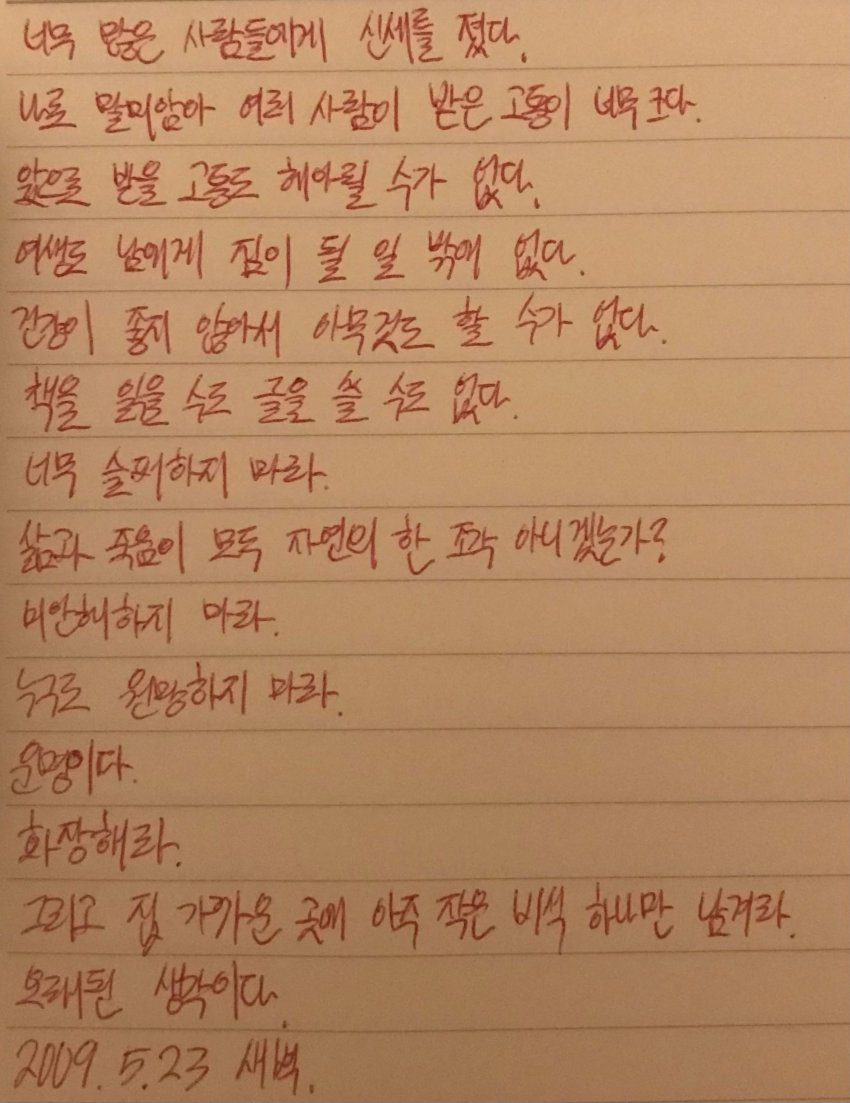 너무 많은 사람들에게 신세를 졌다.
나로 말미암아 여러 사람이 받은 고통이 너무 크다.
앞으로 받을 고통도 헤아릴 수가 없다.
여생도 남에게 짐이 될 일 밖에 없다.
건강이 좋지 않아서 아무것도 할 수가 없다.
책을 읽을 수도 글을 쓸 수도 없다.
너무 슬퍼하지 마라.
삶과 죽음이 모두 자연의 한 조각 아니겠는가?
미안해하지 마라.
누구도 원망하지 마라.
운명이다.
화장해라.
그리고 집 가까운 곳에 아주 작은 비석 하나만 남겨라.
오래된 생각이다.
2009. 5.23 새벽.